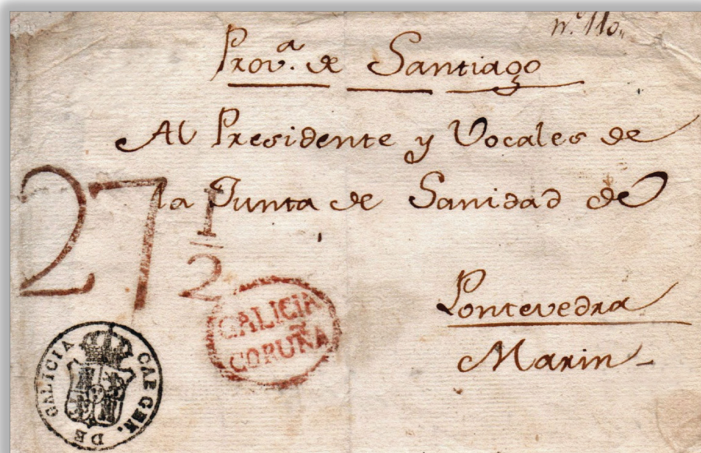 nº. 110.,
Provª. de Santiago
Al Presidente y Vocales de
la Junta de Sanidad de
27 1/2
Pontevedra
Marin
GALICIA
CORUÑA
CAP GEN. DE GALICIA